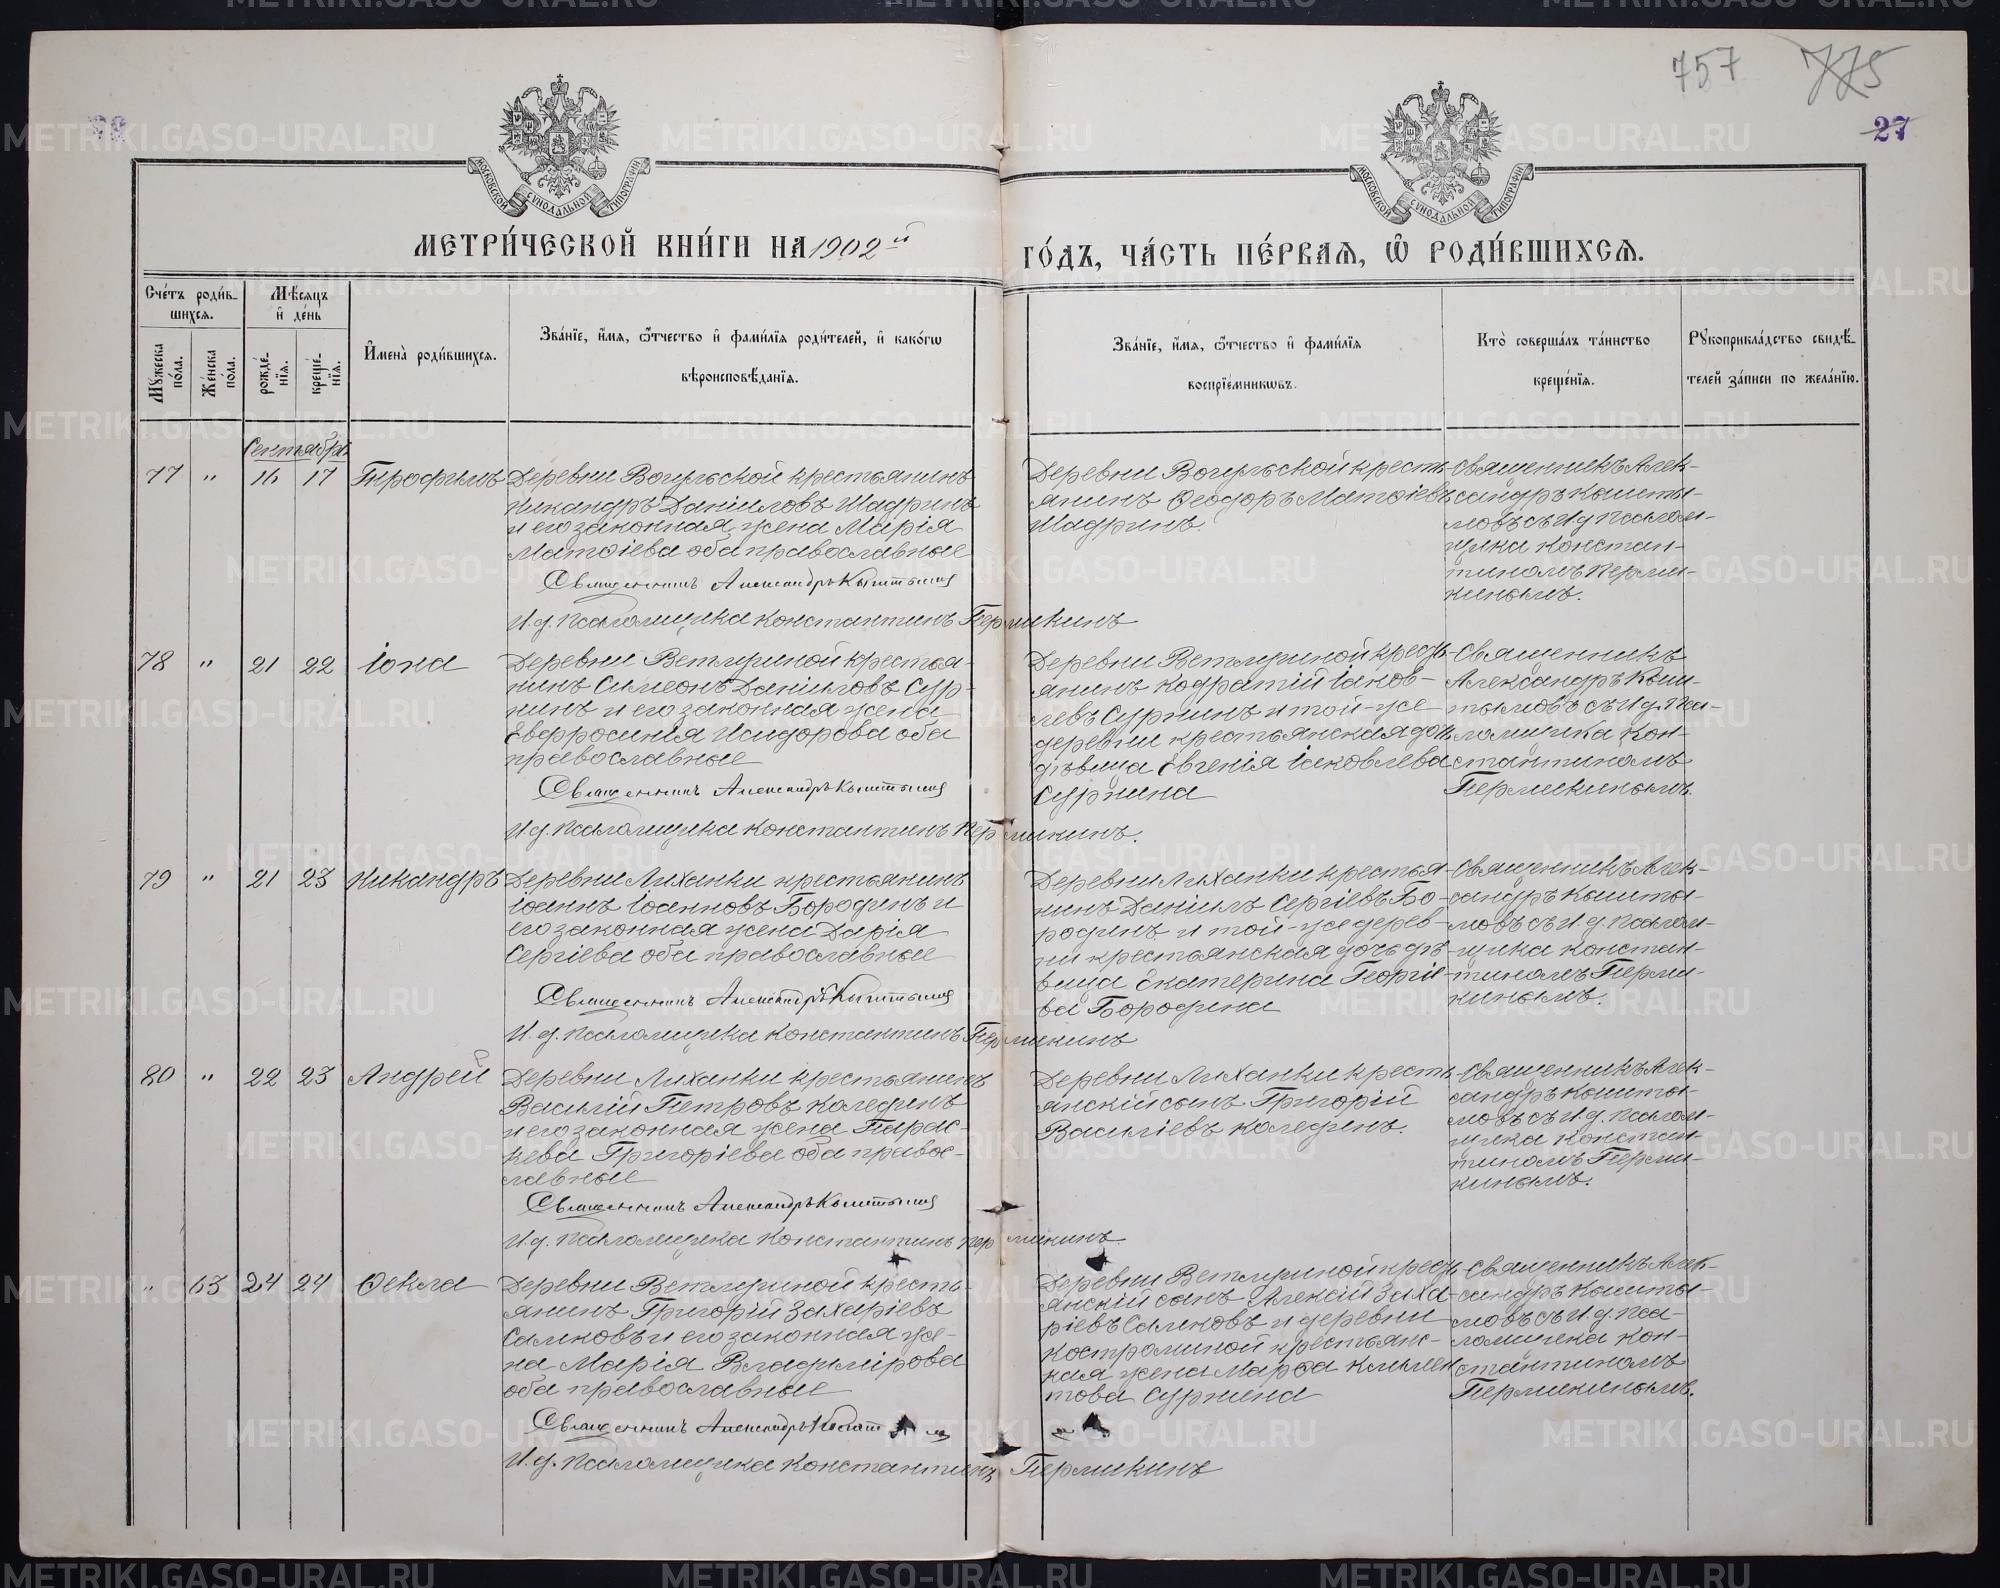 757 775
27
МОСКОВСКОЙ СѴНОДАЛЬНОЙ ТИПОГРАФІИ
МОСКОВСКОЙ СѴНОДАЛЬНОЙ ТИПОГРАФІИ
МЕТРИ́ЧЕСКОЙ КНИ́ГИ НА 1902й
ГО́ДЪ, ЧА́СТЬ ПЕ́РВАѦ, Ѡ҆ РОДИ́ВШИХСѦ.
Сче́тъ роди́в-
шихсѧ.
Мꙋ́жеска
по́ла.
Же́нска
по́ла.
Мѣ́сѧцъ
и҆ де́нь
рожде́-
нїѧ.
креще́-
нїѧ.
И҆мена̀ роди́вшихсѧ.
Зва́нїе, и҆́мѧ, ѻ҆́тчество и҆ фами́лїѧ роди́телей, и҆ како́гѡ
вѣроисповѣ́данїѧ.
Зва́нїе, и҆́мѧ, ѻ҆́тчество и҆ фами́лїѧ
воспрїе́мникѡвъ.
Кто̀ соверша́лъ та́инство
креще́нїѧ.
Рꙋкоприкла́дство свидѣ́-
телей за́писи по жела́нїю.
Сентябрь
77 " 16 17 Трофимъ
Деревни Вогульской крестьянинъ
Никандръ Даніиловъ Шадринъ
и его законная жена Марія
Матѳіева оба православные
Священникъ Александръ Кыштымов
И.д. псаломщика Константинъ Пермикинъ
Деревни Вогульской кресть-
янинъ Ѳеодоръ Матѳіевъ
Шадринъ.
Священникъ Алек-
сандръ Кышты-
мовъ съ И.д. псалом-
щика Констан-
тиномъ Перми-
кинымъ.
78 " 21 22 Іона
Деревни Ветлугиной крестья-
нинъ Симеонъ Даніиловъ Сур-
нинъ и его законная жена
Евфросинія Исидорова оба
православные
Священникъ Александръ Кыштымов
И.д. псаломщика Константинъ Пермикинъ.
Деревни Ветлугиной кресть-
янинъ Кодратій Іаков-
левъ Сурнинъ и той-же
деревни крестьянская дочь
дѣвица Евгенія Іаковлева
Сурнина
Священникъ
Александръ Кыш-
тымовъ съ И.д. Пса-
ломщика Кон-
стантиномъ
Пермикинымъ.
79 " 21 23 Никандръ
Деревни Луханки крестьянинъ
Іоаннъ Іоанновъ Бородинъ и
его законная жена Дарія
Сергіева оба православные
Священникъ Александръ Кыштымов
И.д. псаломщика Константинъ Пермикинъ
Деревни Луханки крестья-
нинъ Даніилъ Сергіевъ Бо-
родинъ и той-же дерев-
ни крестьянская дочь дѣ-
вица Екатерина Георгіе-
ва Бородина
Священникъ Алек-
сандръ Кышты-
мовъ съ И.д. псалом-
щика Констан-
тиномъ Перми-
кинымъ.
80 " 22 23 Андрей
Деревни Луханки крестьянинъ
Василій ПетровъКолединъ
и его законная жена Парас-
кева Григоріева оба правос-
лавные
Священникъ Александръ Кыштымов
И.д. псаломщика Константинъ Пермикинъ.
Деревни Луханки кресть-
янскій сынъ Григорій
Василіевъ Колединъ.
Священникъ Алек-
сандръ Кышты-
мовъ съ И.д. псалом-
щика Констан-
тиномъ Перми-
кинымъ.
" 63 24 24 Ѳекла
Деревни Ветлугиной кресть-
янинъ Григорій Захаріевъ
Салковъ и его законная же-
на Марія Владимірова
оба православные
Священникъ Александръ
И.д. псаломщика Константинъ Пермикинъ
Деревни Ветлугиной кресть-
янскій сынъ Алексій Заха-
ріевъ Салковъ и деревни
Костроминой крестьянс-
кая жена Марѳа Климен-
това Сурнина
Священникъ Алек-
сандръ Кышты-
мовъ съ И.д. пса-
ломщика Кон-
стантиномъ
Пермикинымъ.
METRIKI.GASO-URAL.RU